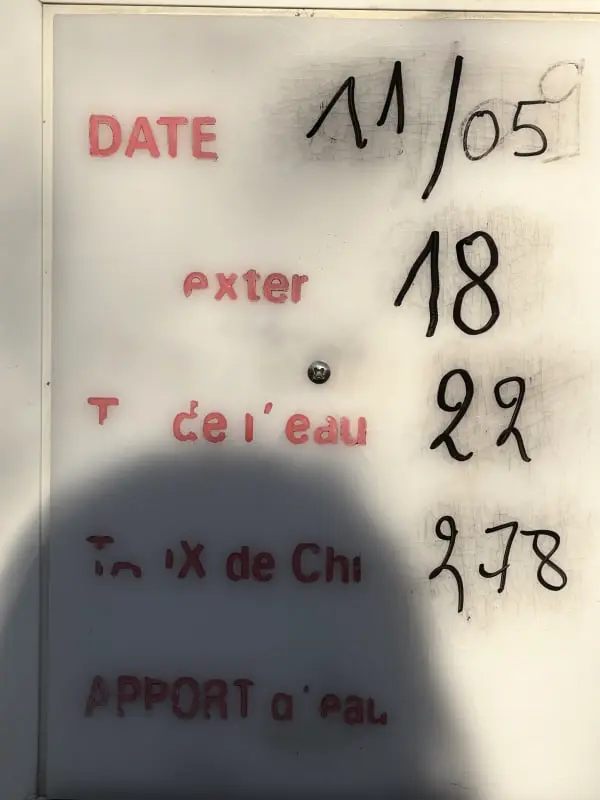 DATE 11/05
exter 18
T de l'eau 22
Taux de Chl 278
APPORT d'eau